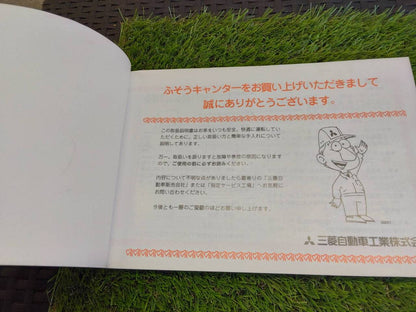 ふそうキャンターをお買い上げいただきまして
誠にありがとうございます。
この取扱説明書はお車をいつも安全、快適に運転してい
ただくために、正しい取扱い方と簡単な手入れについて
説明してあります。
万一、取扱いを誤りますと故障や事故の原因になりますの
で、ご使用の前に必ずお読みください。
内容について不明な点がありましたら最寄りの「三菱自
動車販売会社」または「指定サービス工場」へお気軽に
お問い合わせください。
今後とも一層のご愛顧のほどお願い申し上げます。
三菱自動車工業株式会